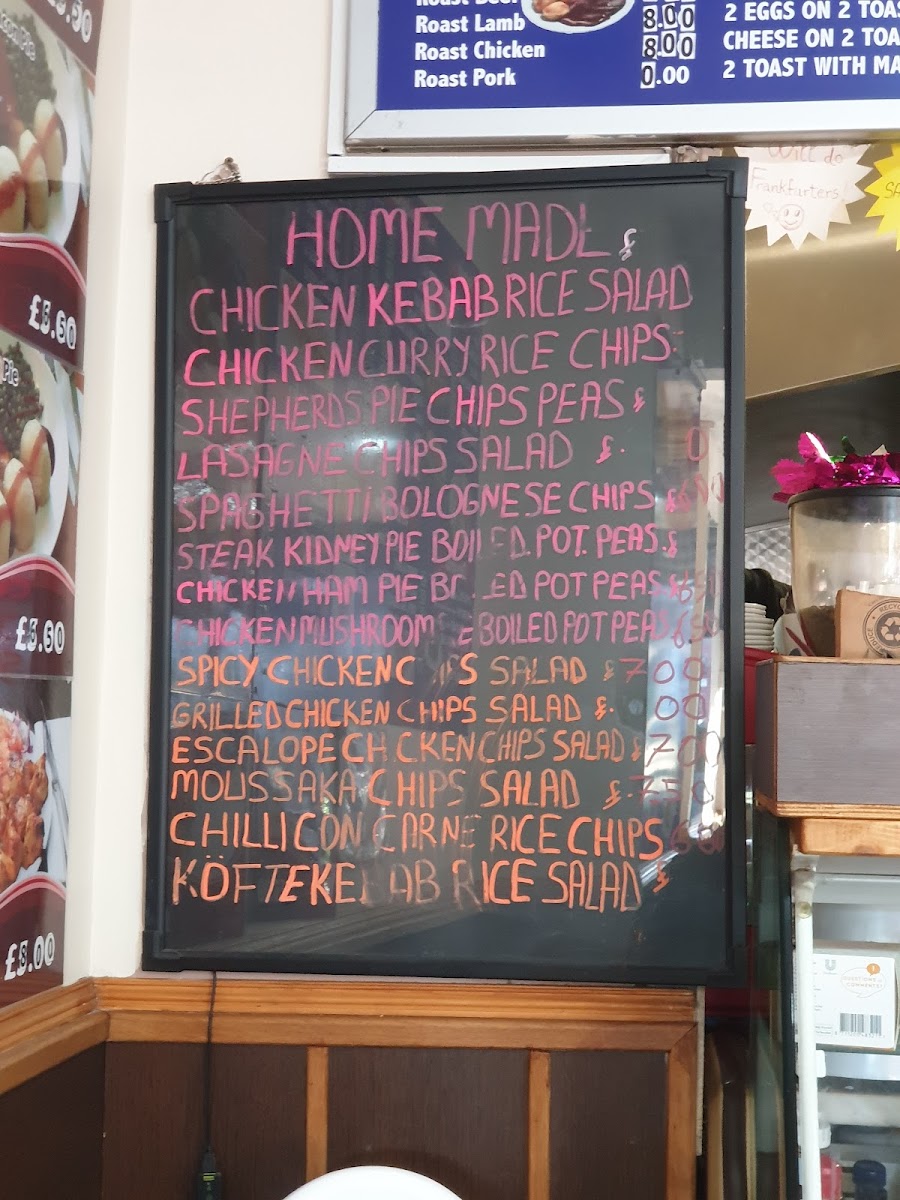 £8.50
Roast Lamb 8.00
Roast Chicken 8.00
Roast Pork 0.00
2 EGGS ON 2 TOAS
CHEESE ON 2 TOA
2 TOAST WITH MA
Will do
Frankfurters!
HOME MADE £
CHICKEN KEBAB RICE SALAD
CHICKEN CURRY RICE CHIPS
SHEPHERDS PIE CHIPS PEAS £
LASAGNE CHIPS SALAD £. 0
SPAGHETTI BOLOGNESE CHIPS £
STEAK KIDNEY PIE BOILED. POT. PEAS. £
CHICKEN HAM PIE BO ED POT PEAS £
CHICKEN MUSHROOM E BOILED POT PEAS £ 650
SPICY CHICKEN C IPS SALAD £ 700
GRILLED CHICKEN CHIPS SALAD £. 00
ESCALOPE CHICKEN CHIPS SALAD £ 700
MOUSSAKA CHIPS SALAD £. 7 0
CHILLI CON CARNE RICE CHIPS
KÖFTE KE AB RICE SALAD £
Pie
£8.00